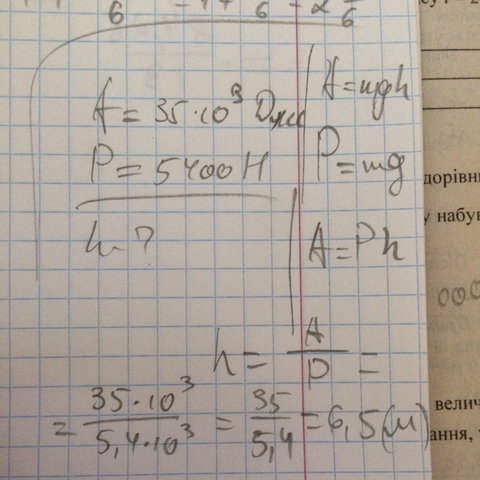 A = 35·10³ Дж
P = 5400 Н
h - ?
A = mgh
P = mg
A = Ph
h = A/P =
= 35·10³/5,4·10³ = 35/5,4 = 6,5 (м)
дорівн
у набу
велич
ання,